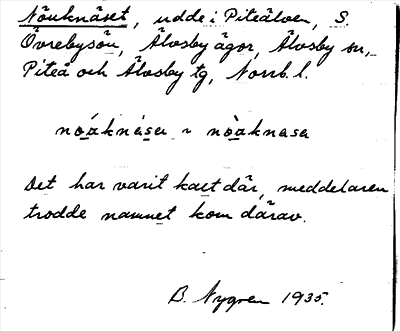 Nöuknäset, udde i Piteälven, S.
Övrebysön, Älvsby ägor, Älvsby sn,
Piteå och Älvsby tg, Norrb. l.
nọ́aknäsa ~ nọ̀aknasa
Det har varit kast där, meddelaren
trodde namnet kom därav.
B. Nygren 1935.